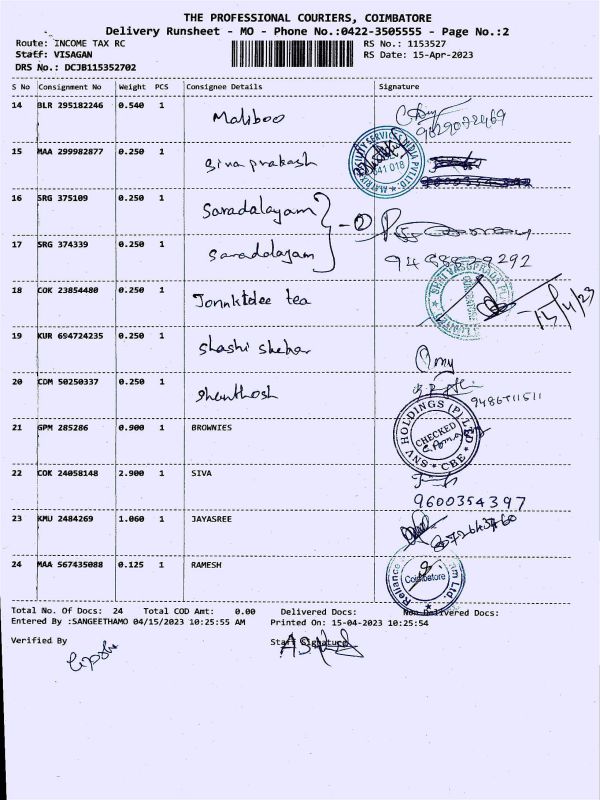 THE PROFESSIONAL COURIERS, COIMBATORE
Delivery Runsheet - MO - Phone No.:0422-3505555 - Page No.:2
Route: INCOME TAX RC RS No.: 1153527
Staff: VISAGAN RS Date: 15-Apr-2023
DRS No.: DCJB115352702
S No Consignment No Weight PCS Consignee Details Signature
14 BLR 295182246 0.540 1 Maliboo
15 MAA 299982877 0.250 1 Siva prakash
641 018
16 SRG 375109 0.250 1 Saradalayam
- 2
17 SRG 374339 0.250 1 Saradalayam
18 COK 23854480 0.250 1 tea
19 KUR 694724235 0.250 1 Shashi Shekar
20 CDM 50250337 0.250 1 Shanthosh
21 GPM 285286 0.900 1 BROWNIES
SNV HOLDINGS (P) LTD
CHECKED
CBE
22 COK 24058148 2.900 1 SIVA
9600354397
23 KMU 2484269 1.060 1 JAYASREE
24 MAA 567435088 0.125 1 RAMESH
Reliance
Coimbatore
Ltd.
Total No. Of Docs: 24 Total COD Amt: 0.00 Delivered Docs: Non Delivered Docs:
Entered By :SANGEETHAMO 04/15/2023 10:25:55 AM Printed On: 15-04-2023 10:25:54
Verified By Staff Signature